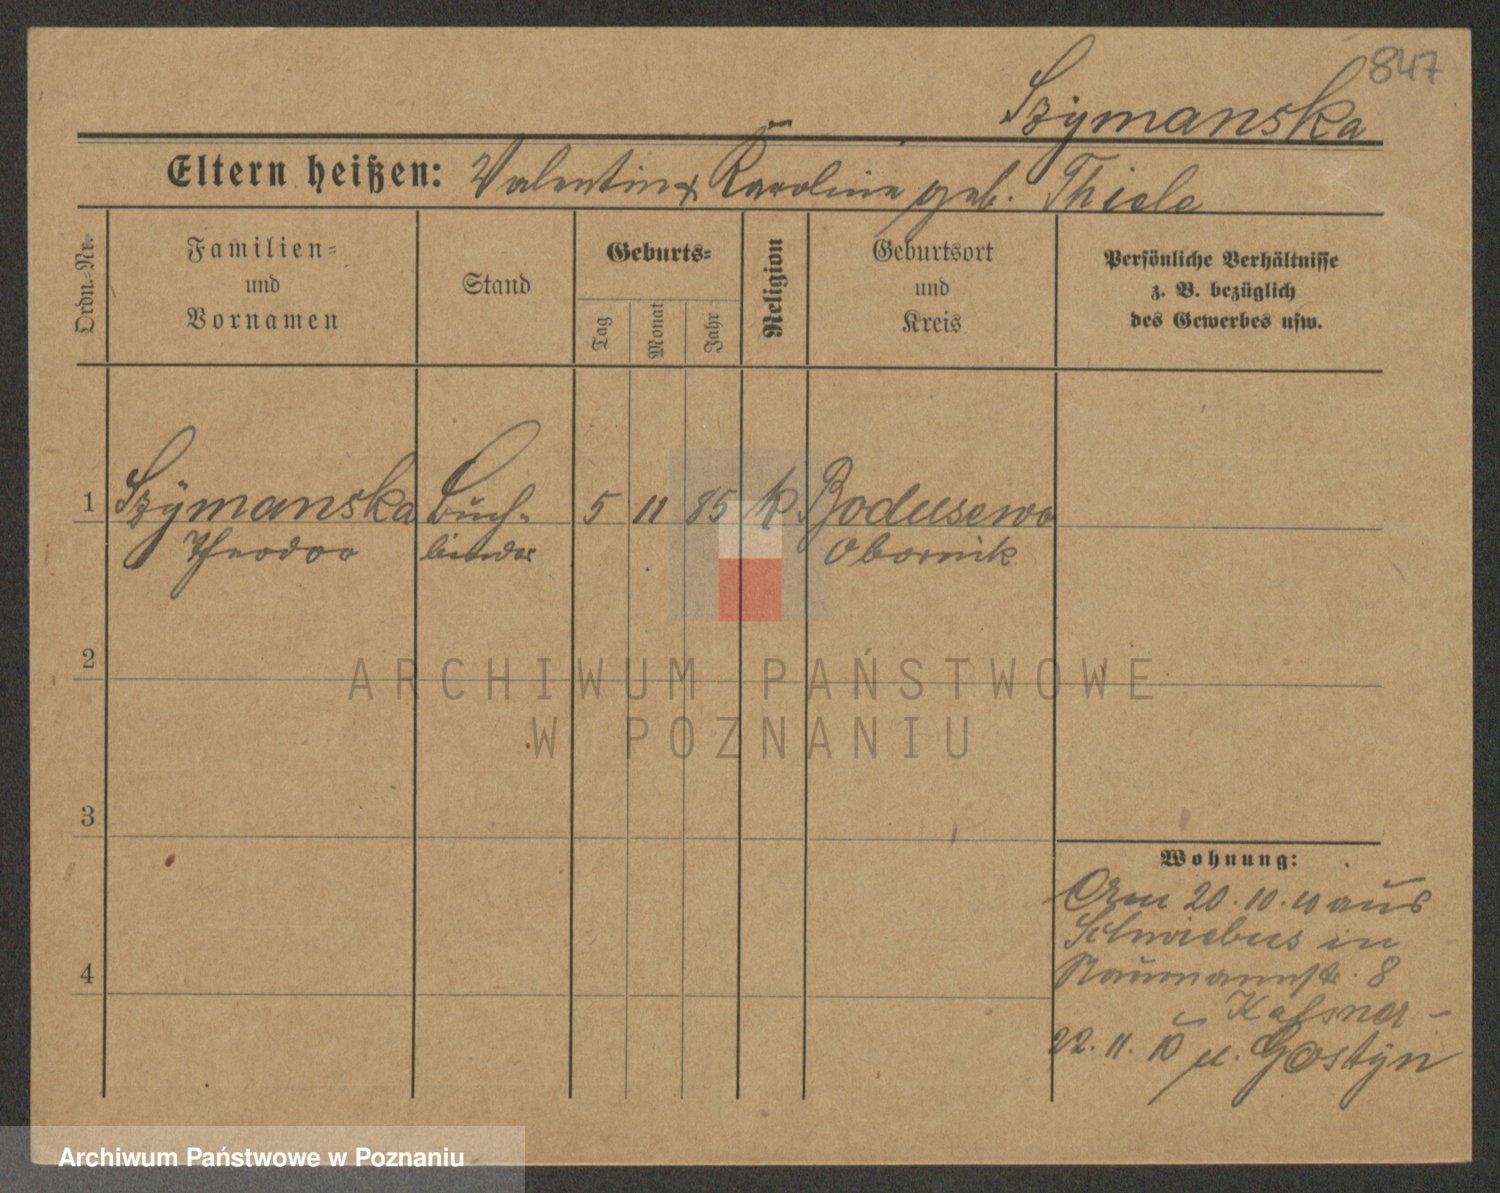 847
Szymanska
Eltern heißen: Valentin & Karoline geb. Thiele
Ordn.=Nr.
Familien=
und
Vornamen
Stand
Geburts=
Tag
Monat
Jahr
Religion
Geburtsort
und
Kreis
Persönliche Verhältnisse
z. B. bezüglich
des Gewerbes usw.
1 Szymanska Buch- 5 11 85 k Bodusewo
Theodor binder Obornik
2
3
4
Wohnung:
20.10.10 aus
Schwiebus in
Naumannstr. 8
22.11.10 n. Gostyn
ARCHIWUM PAŃSTWOWE
W POZNANIU
Archiwum Państwowe w Poznaniu